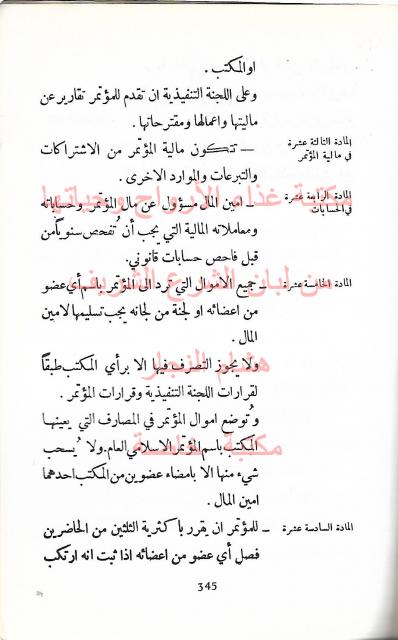 او المكتب .
وعلى اللجنة التنفيذية ان تقدم للمؤتمر تقارير عن
ماليتها واعمالها ومقترحاتها .
المادة الثالثة عشرة
في مالية المؤتمر
— تتكون مالية المؤتمر من الاشتراكات
والتبرعات والموارد الاخرى .
المادة الرابعة عشرة
في الحسابات
– امين المال مسؤول عن مال المؤتمر وحساباته
ومعاملاته المالية التي يجب أن تُفحص سنوياً من
قبل فاحص حسابات قانوني .
المادة الخامسة عشرة
– جميع الاموال التي ترد الى المؤتمر باسم أي عضو
من اعضائه او لجنة من لجانه يجب تسليمها لامين
المال .
ولا يجوز التصرف فيها الا برأي المكتب طبقاً
لقرارات اللجنة التنفيذية وقرارات المؤتمر .
وتُوضع اموال المؤتمر في المصارف التي يعينها
المكتب باسم المؤتمر الاسلامي العام . ولا يُسحب
شيء منها الا بامضاء عضوين من المكتب احدهما
امين المال .
المادة السادسة عشرة
– للمؤتمر ان يقرر باكثرية الثلثين من الحاضرين
فصل أي عضو من اعضائه اذا ثبت انه ارتكب
345
مكتبة غذاء الأرواح وحياتها
من لبان الشرع الشريف
هشام النجار
مكتبة خاصة